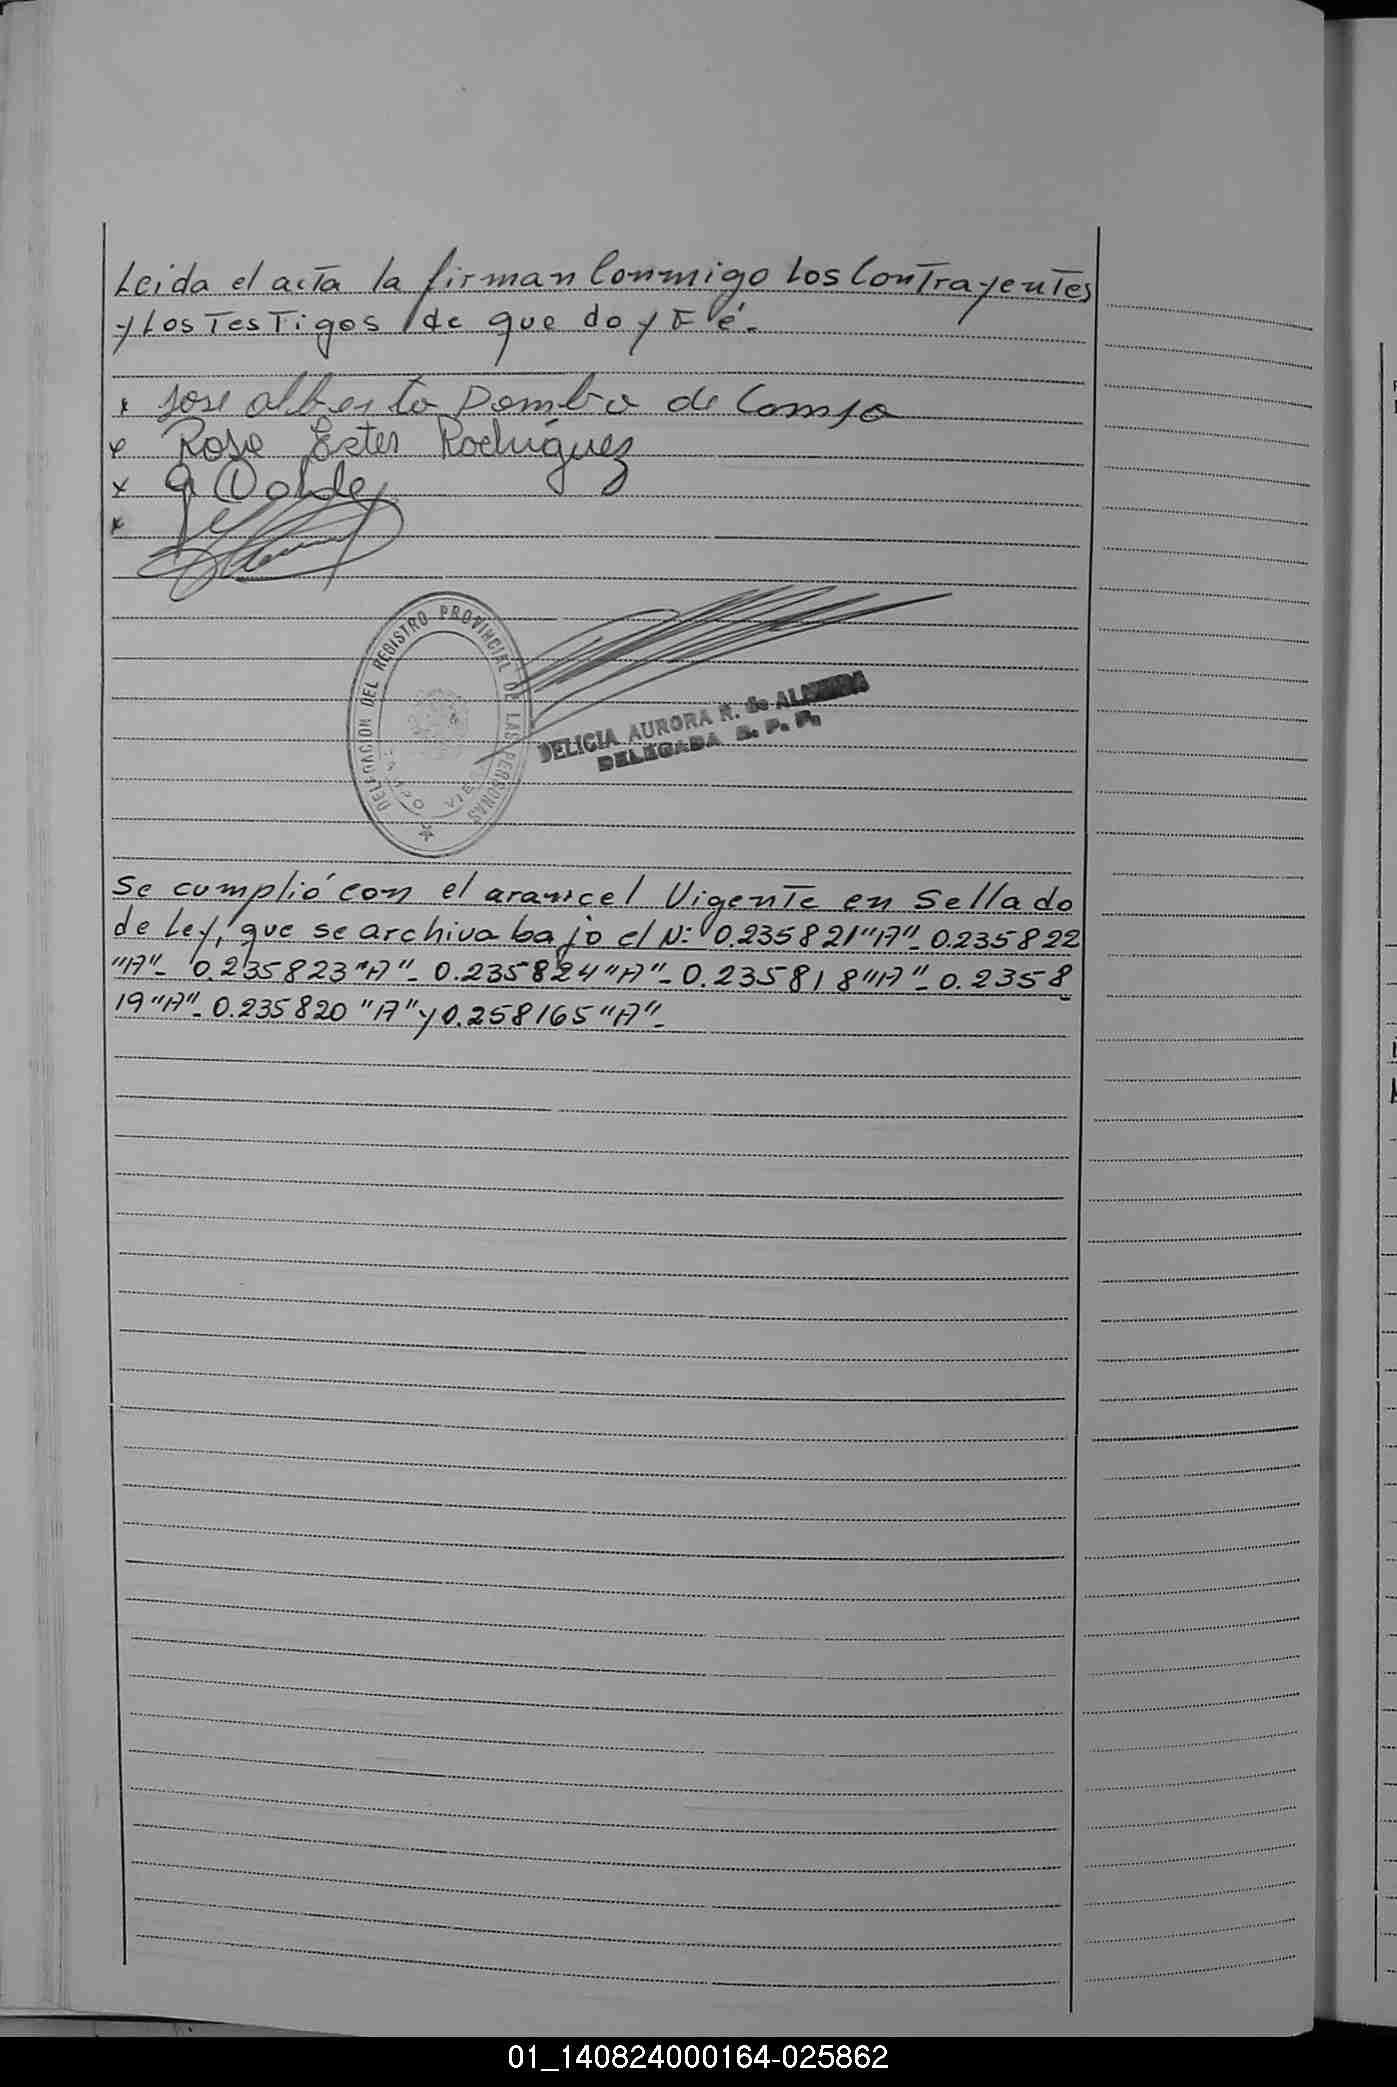 Leida el acta la firman Conmigo Los Contrayentes
y Los Testigos de que doy Fé.-
x Jose alberto Dombro de
x Rosa Ester Rodriguez
x
x
DELEGACION DEL REGISTRO PROVINCIAL DE LAS PERSONAS
CAMPO VIERA
DELICIA AURORA R. de ALMEIDA
DELEGADA R. P. P.
Se cumplió con el arancel Vigente en Sellado
de Ley, que se archiva bajo el N: 0.235821"A"- 0.235822
"A"- 0.235823"A"- 0.235824"A"- 0.235818"A"- 0.2358
19"A"- 0.235820 "A" y 0.258165"A"-
01_140824000164-025862